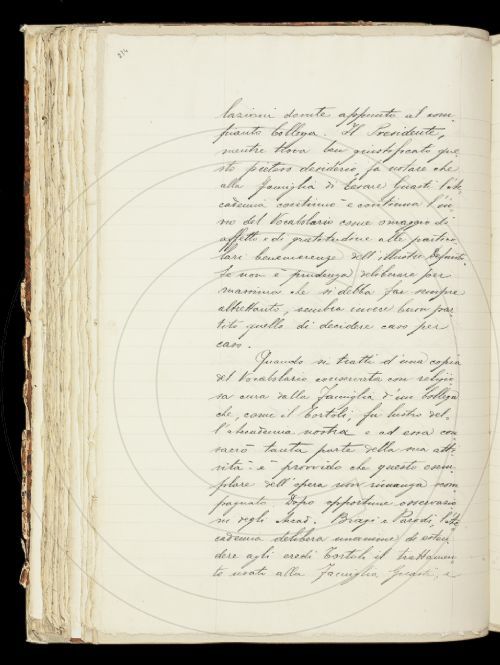 214
lazioni dovute appunto al com-
pianto Collega. Il Presidente,
mentre trova ben giustificato que
sto pietoso desiderio, fa notare che
alla famiglia di Cesare Guasti l'Ac
cademia continuò e continua l'in
vio del Vocabolario come omaggio di
affetto e di gratitudine alle partico
lari benemerenze dell'illustre Defunto.
Se non è prudenza deliberare per
massima che si debba far sempre
altrettanto, sembra invece buon par
tito quello di decidere caso per
caso.
Quando si tratti d'una copia
del Vocabolario conservata con religio
sa cura dalla famiglia d'un Collega
che, come il Tortoli fu lustro del-
l'Accademia nostra e ad essa con
sacrò tanta parte della sua atti
vità è provvido che questo esem
plare dell'opera non rimanga scom
pagnato. Dopo opportune osservazio
ni degli Accad. Biagi e Parodi l'Ac
cademia delibera unanime di esten
dere agli eredi Tortoli il trattamen
to usato alla Famiglia Guasti, e